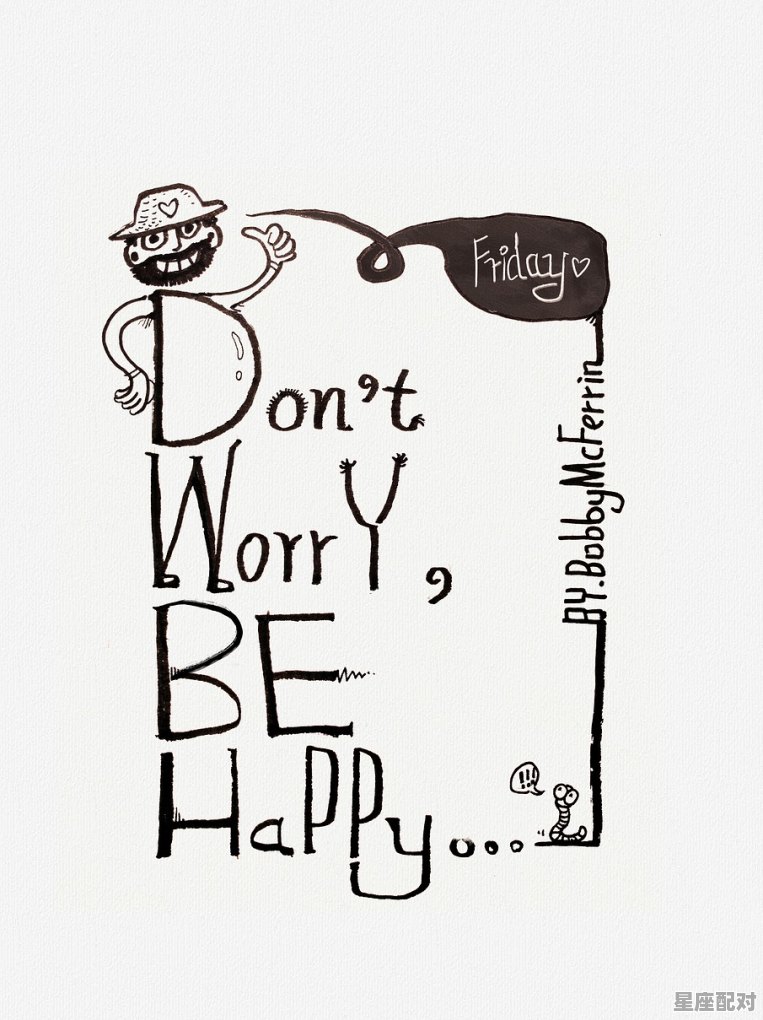 Friday♡
Don't
Worry,
BE
Happy...
BY.BobbyMcFerrin
!!!
星座配对